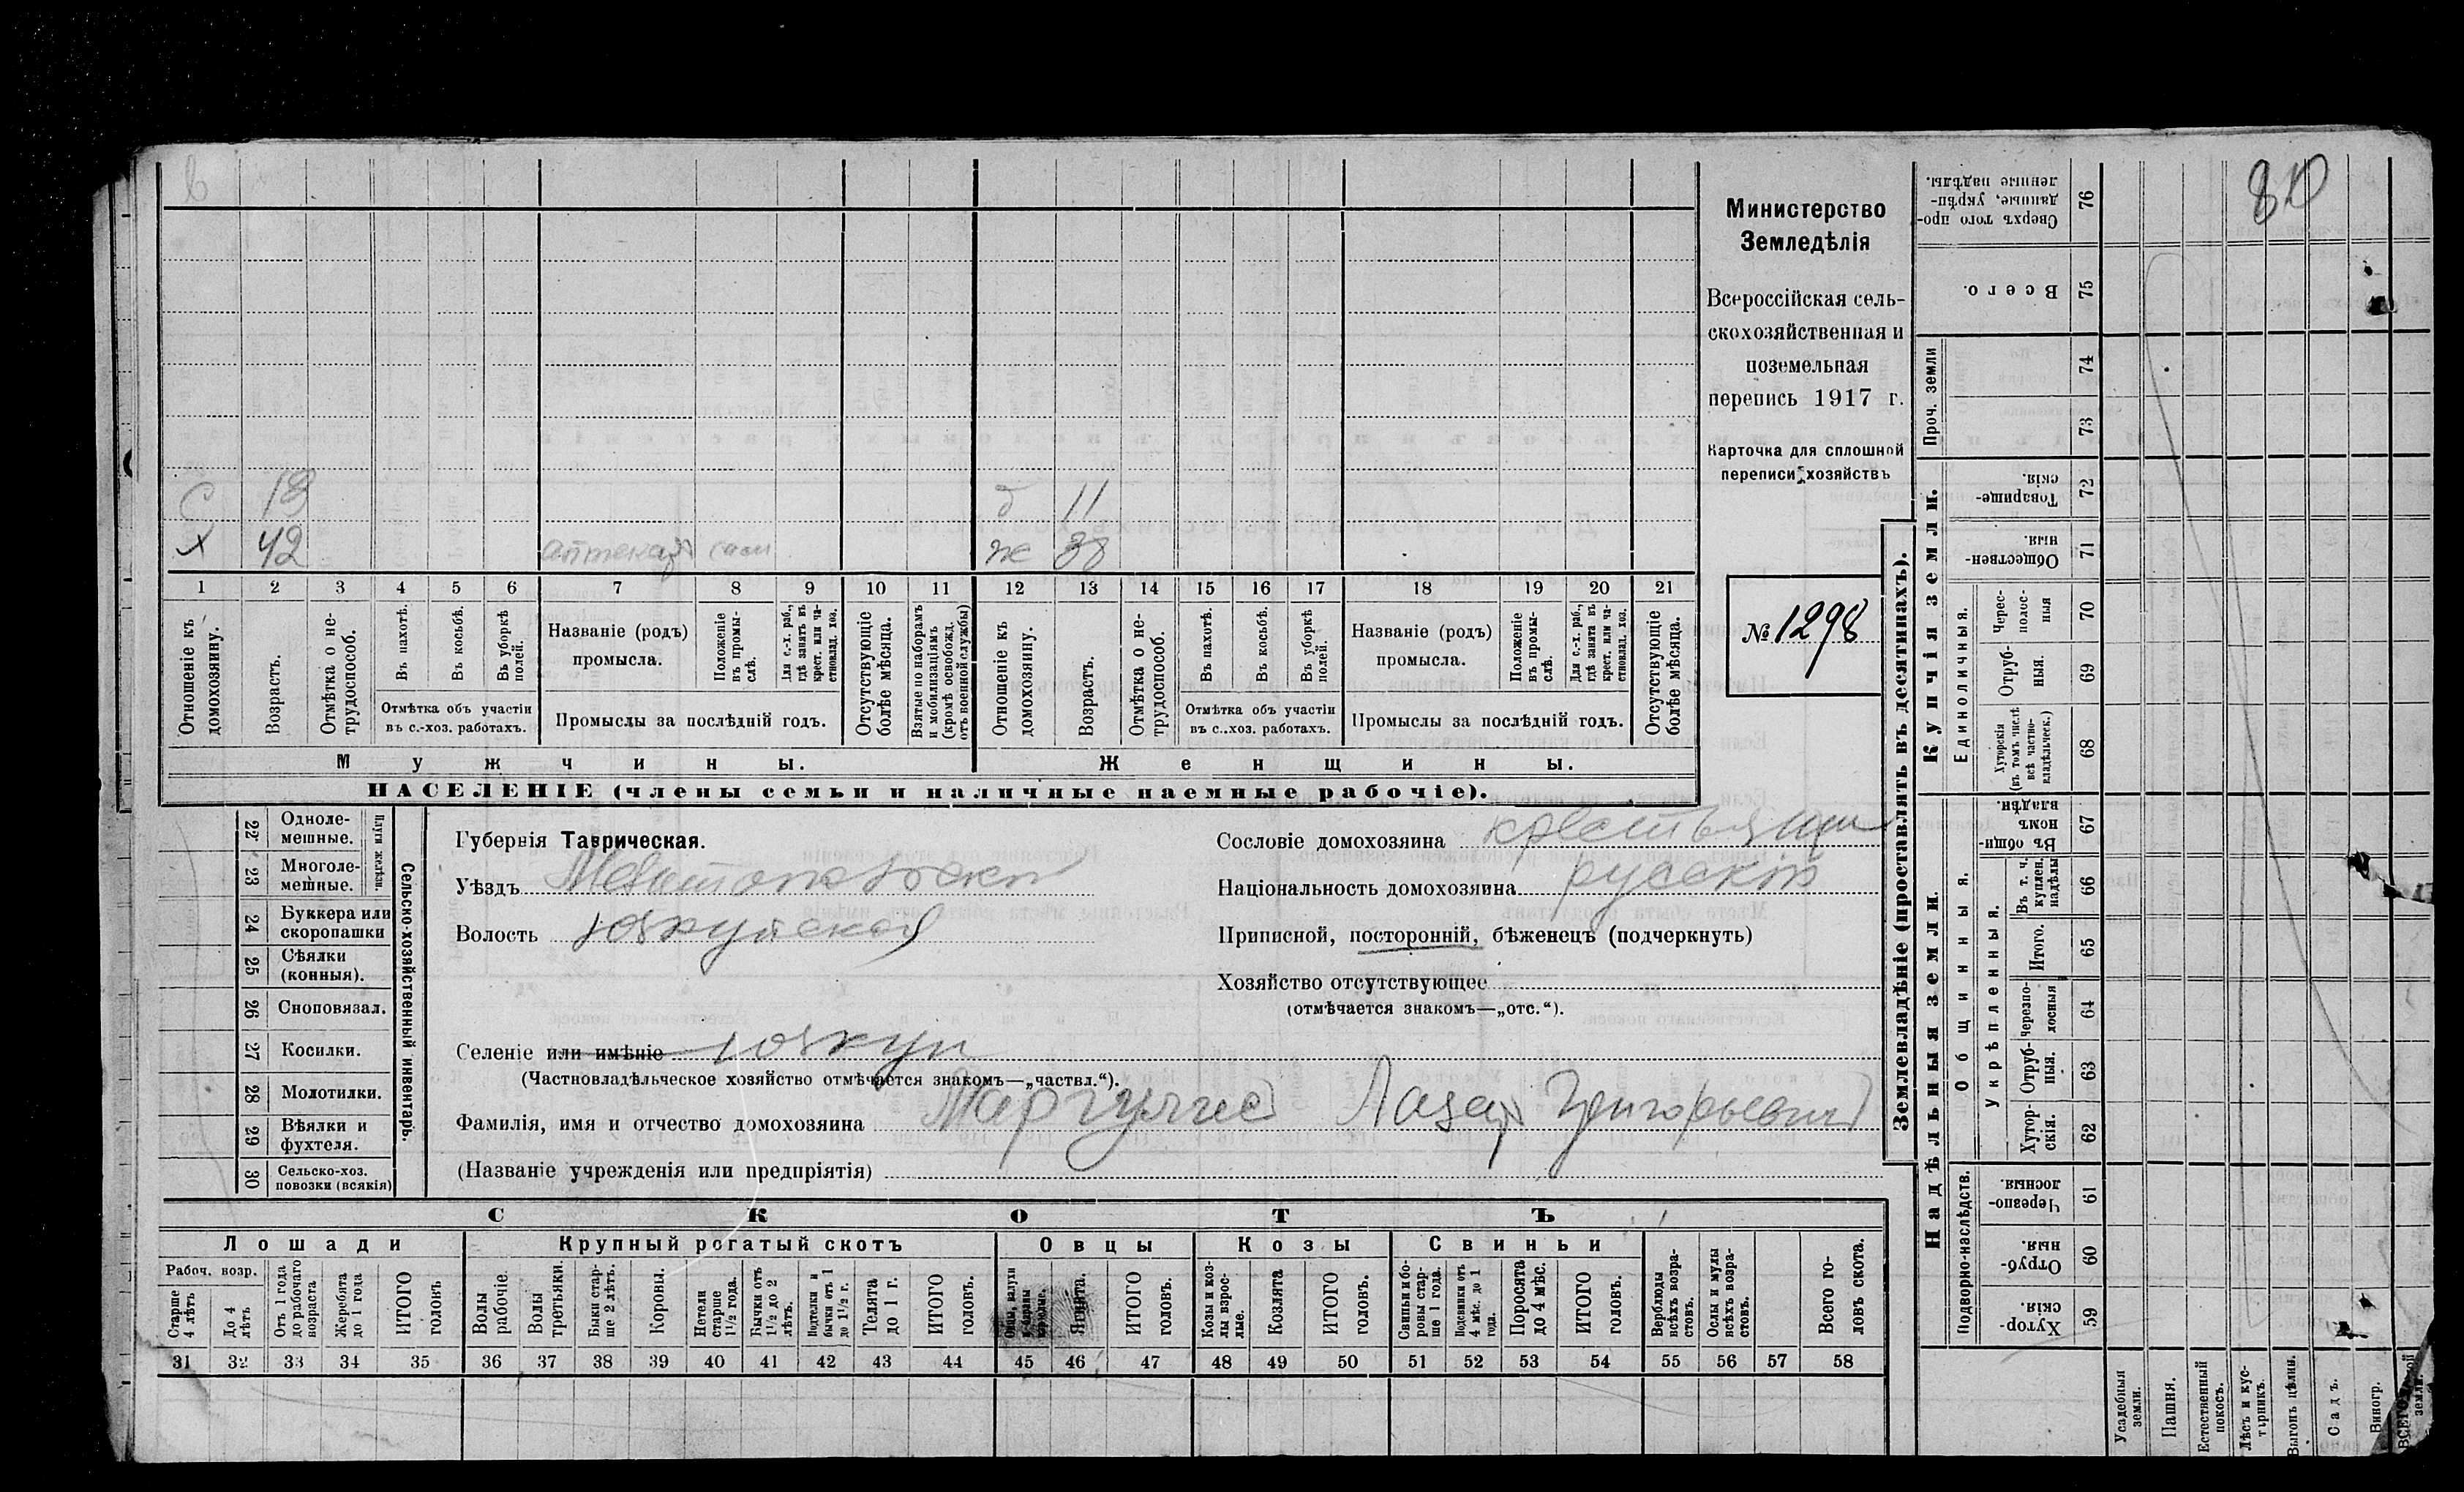 в
80
Министерство
Земледѣлія
Всероссійская сель-
скохозяйственная и
поземельная
перепись 1917 г.
Карточка для сплошной
переписи хозяйствъ
№ 1298
С 19 д 11
Х 42 аптекарь сам ж 38
1 2 3 4 5 6 7 8 9 10 11 12 13 14 15 16 17 18 19 20 21
Отношеніе къ домохозяину.
Возрастъ.
Отмѣтка о не-трудоспособ.
Въ пахотѣ.
Въ косьбѣ.
Въ уборкѣ полей.
Отмѣтка объ участіи
въ с.-хоз. работахъ.
Названіе (родъ)
промысла.
Положеніе въ промы-слѣ.
Для с.-х. раб., гдѣ занятъ въ крест. или ча-стновлад. хоз.
Промыслы за послѣдній годъ.
Отсутствующіе болѣе мѣсяца.
Взятые по наборамъ и мобилизаціямъ (кромѣ освобожд. отъ военной службы)
Отношеніе къ домохозяину.
Возрастъ.
Отмѣтка о не-трудоспособ.
Въ пахотѣ.
Въ косьбѣ.
Въ уборкѣ полей.
Отмѣтка объ участіи
въ с..хоз. работахъ.
Названіе (родъ)
промысла.
Положеніе въ промы-слѣ.
Для с.-х. раб., гдѣ занята въ крест. или ча-стновлад. хоз.
Промыслы за послѣдній годъ.
Отсутствующіе болѣе мѣсяца.
Мужчины. Женщины.
НАСЕЛЕНІЕ (члены семьи и наличные наемные рабочіе).
22 Одноле-мешные.
23 Многоле-мешные.
Плуги желѣзн.
24 Буккера или скоропашки
25 Сѣялки (конныя).
26 Сноповязал.
27 Косилки.
28 Молотилки.
29 Вѣялки и фухтеля.
30 Сельско-хоз. повозки (всякія)
Сельско-хозяйственный инвентарь.
Губернія Таврическая.
Уѣздъ Мелитопольскій
Волость Юзкуйская
Селеніе или имѣніе Юзкуи
(Частновладѣльческое хозяйство отмѣчается знакомъ—„частвл.“).
Фамилія, имя и отчество домохозяина Маргулис Лазарь Григорьевич
(Названіе учрежденія или предпріятія)
Сословіе домохозяина крестьянин
Національность домохозяина русскій
Приписной, посторонній, бѣженецъ (подчеркнуть)
Хозяйство отсутствующее
(отмѣчается знакомъ—„отс.“).
СКОТЪ
Лошади Крупный рогатый скотъ Овцы Козы Свиньи
Рабоч. возр.
Старше 4 лѣтъ
До 4 лѣтъ
Отъ 1 года до рабочаго возраста
Жеребята до 1 года
ИТОГО головъ
Волы рабочіе.
Волы третьяки.
Быки стар-ше 2 лѣтъ.
Коровы.
Нетели старше 1½ года.
Бычки отъ 1½ до 2 лѣтъ.
Подтелки и бычки отъ 1 до 1½ г.
Телята до 1 г.
ИТОГО головъ.
Ягнята.
ИТОГО головъ.
Козы и коз-лы взрос-лые.
Козлята
ИТОГО головъ.
Свиньи и бо-ровы стар-ше 1 года.
Подсвинки отъ 4 мѣс. до 1 года.
Поросята до 4 мѣс.
ИТОГО головъ.
Верблюды всѣхъ возра-стовъ.
Ослы и мулы всѣхъ возра-стовъ.
Всего го-ловъ скота.
31 32 33 34 35 36 37 38 39 40 41 42 43 44 45 46 47 48 49 50 51 52 53 54 55 56 57 58
Землевладѣніе (проставлять въ десятинахъ).
Купчія земли.
Надѣльныя земли.
Сверхъ того про-данные, укрѣп-ленные надѣлы. 76
Всего. 75
Проч. земли 74 73
Товарище-скія. 72
Обществен-ныя. 71
Единоличныя.
Черес-полос-ныя 70
Отруб-ныя. 69
Хуторскія (въ томъ числѣ всѣ частно-владѣльческ.) 68
Общинныя.
Въ общин-номъ владѣн. 67
Укрѣпленныя.
Въ т. ч. куплен. надѣлы 66
Итого. 65
Черезпо-лосныя 64
Отруб-ныя. 63
Хутор-скія. 62
Подворно-наслѣдств.
Черезпо-лосныя 61
Отруб-ныя. 60
Хутор-скія. 59
Усадебныя земли.
Пашня.
Естественный покосъ.
Лѣсъ и кус-тарникъ.
Выгонъ цѣлин.
Садъ.
Виногр.
ВСЕГО земли.